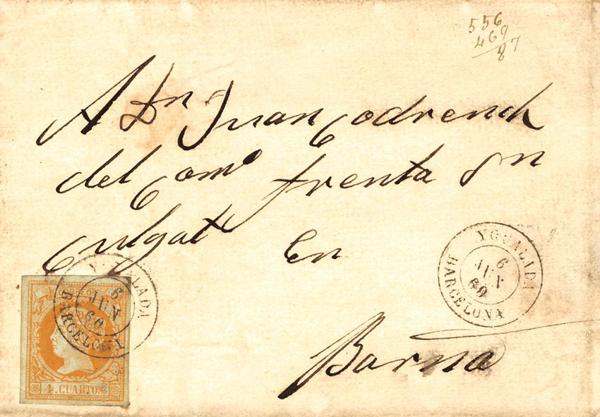 556
469
87
A Dn Juan Codrench
del Como frenta Sn
Culgat En
Barna
YGUALADA
6
JUN
60
BARCELONA
YGUALADA
6
JUN
60
BARCELONA
4 CUARTOS